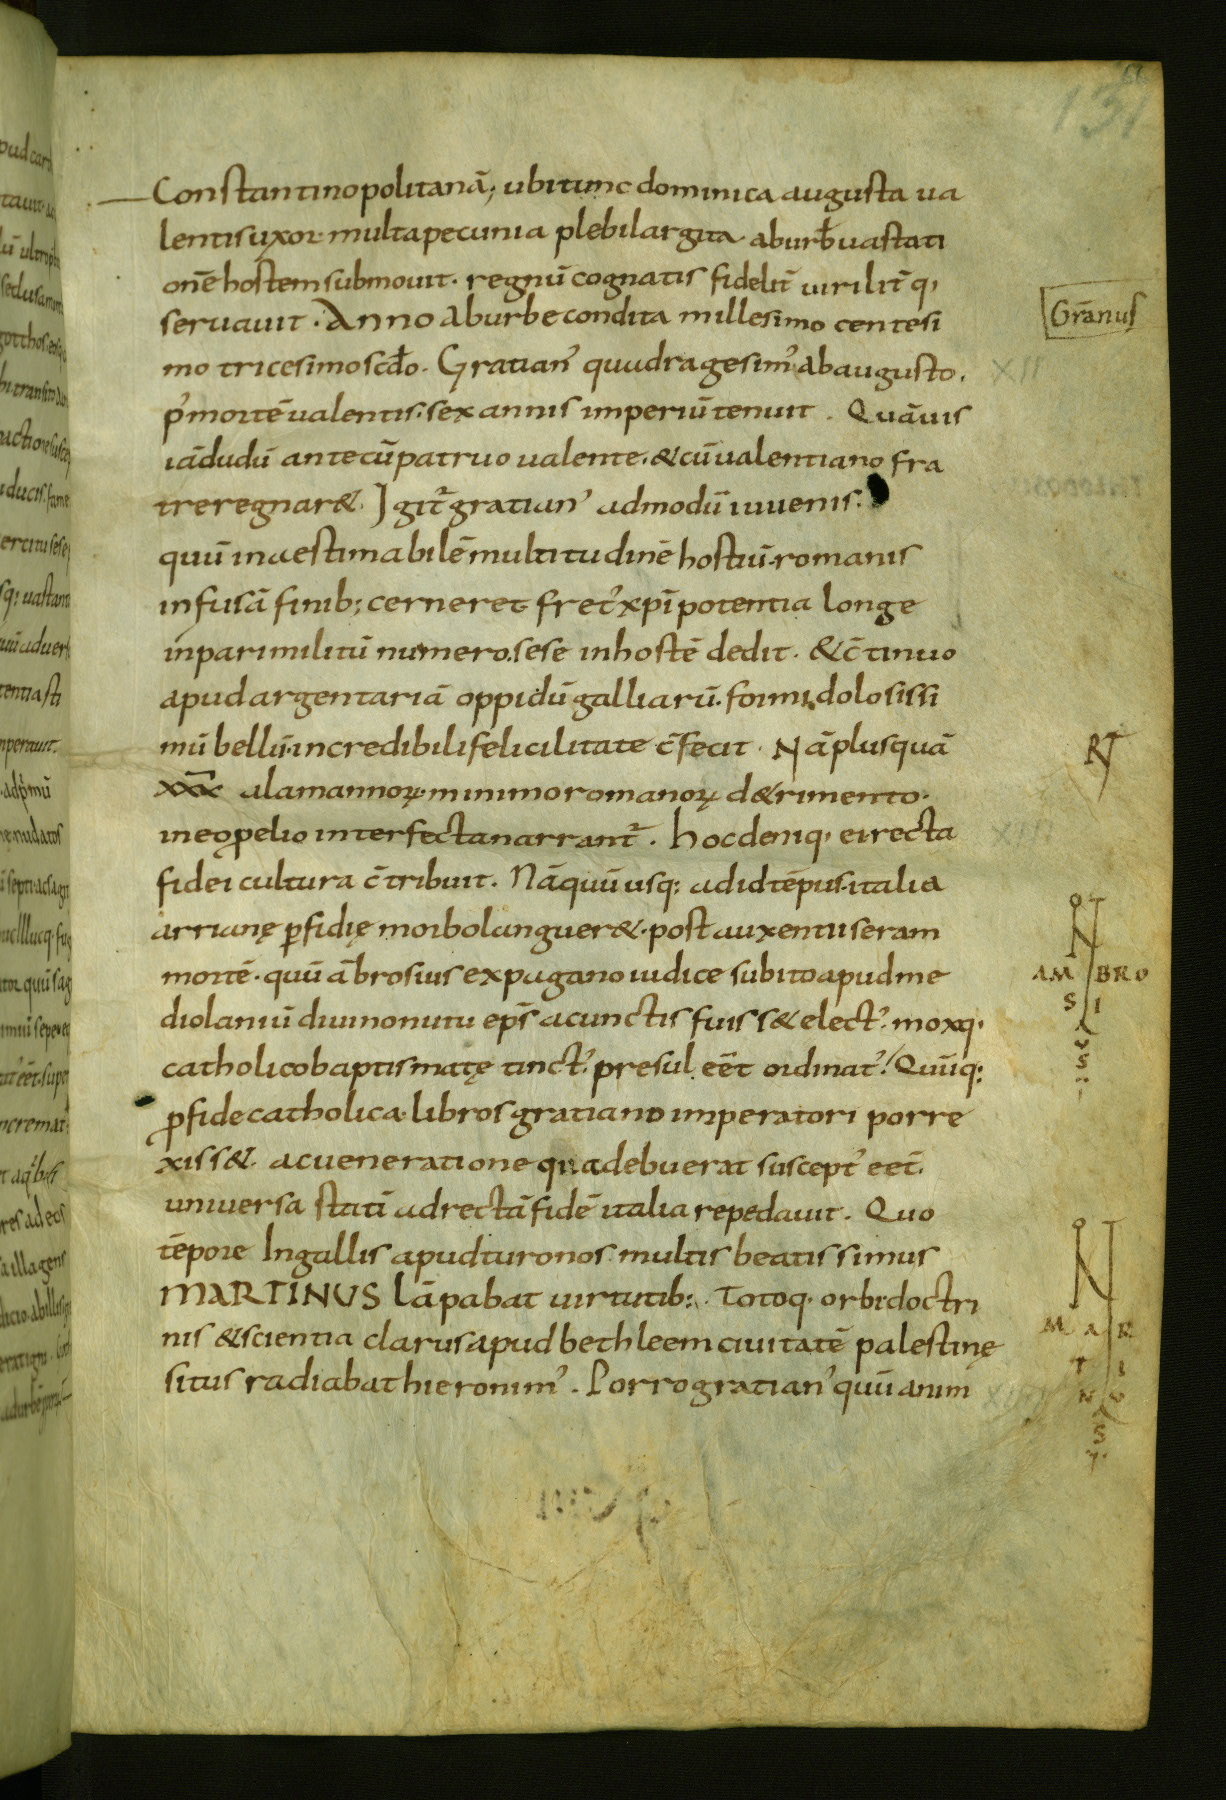 131
Constantinopolitanā; ubitunc dominica augusta ua
lentis uxor multa pecunia plebi largita aburbē uastati
onē hostem submouit. regnū cognatis fidelit̄ uirilit̄ q;
seruauit. Anno aburbe condita millesimo centesi
mo tricesimo scd̄o. Gratian' quadragesim' ab augusto.
p' mortē ualentis. sex annis imperiū tenuit. Quāuis
iādudū ante cū patruo ualente. & cū ualentiano fra
tre regnar&. Igit̄ gratian' admodū iuuenis.
quū inaestimabilē multitudinē hostiū romanis
infusā finib; cerneret. fret' xp̄i potentia longe
inpari militū numero. sese in hostē dedit. & c̄tinuo
apud argentariā oppidū galliarū. formidolosissi
mū bellū. incredibili felicilitate c̄fecit. Nā plus quā
xxx̄ alamannoꝝ. minimo romanoꝝ d&rimento.
in eo p̄elio interfecta narrant̄. hoc deniq; ei recta
fidei cultura c̄tribuit. Nā quū usq; ad id tēpus. italia
arrianę ꝑfidię morbo languer&. post auxentii seram
mortē. quū ābrosius ex pagano iudice subito apud me
diolaniū diuino nutu ep̄s a cunctis fuiss& elect'. moxq;
catholico baptismatę tinct'. presul. eēt ordinat'. Quūq;
ꝓ fide catholica. libros gratiano imperatori porre
xiss&. ac ueneratione qua debuerat suscept' eēt.
uniuersa statī ad rectā fidē italia repedauit. Quo
tēpore In gallis apud turonos. multis beatissimus
MARTINUS lāpabat uirtutib;. Totoq; orbi doctri
nis & scientia clarus apud bethleem ciuitatē palestinę
situs radiabat hieronim'. Porro gratian' quū anim
Grānus
AM BRO
S I
V
S
M A R
T I
N V
S